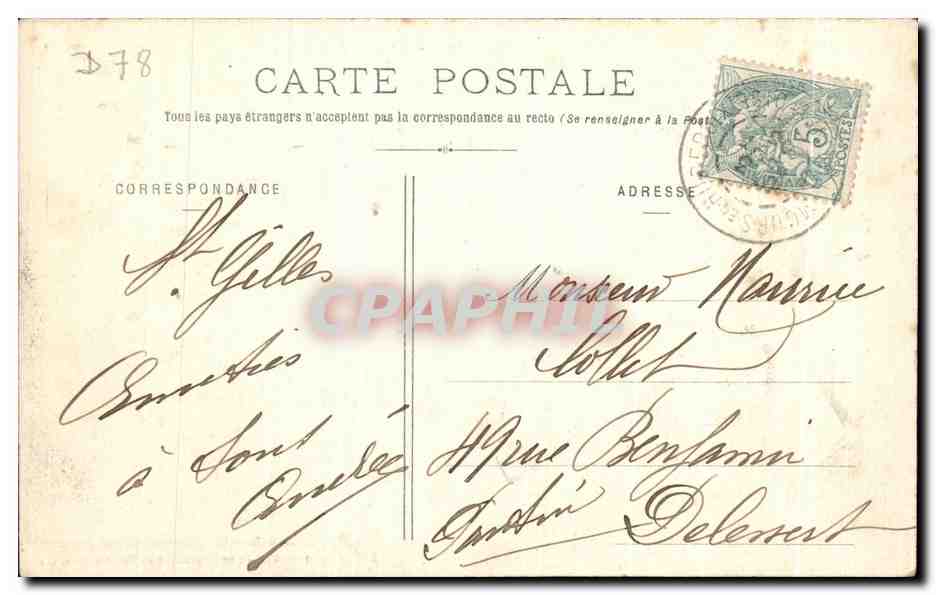 D78
CARTE POSTALE
Tous les pays étrangers n'acceptent pas la correspondance au recto (Se renseigner à la Post
CORRESPONDANCE
ADRESSE
5
POSTES
St Gilles
Amitiés
à tout
André
CPAPHIL
Monsieur Maurice
Collet
49 rue Benjamin
Delessert
Pantin